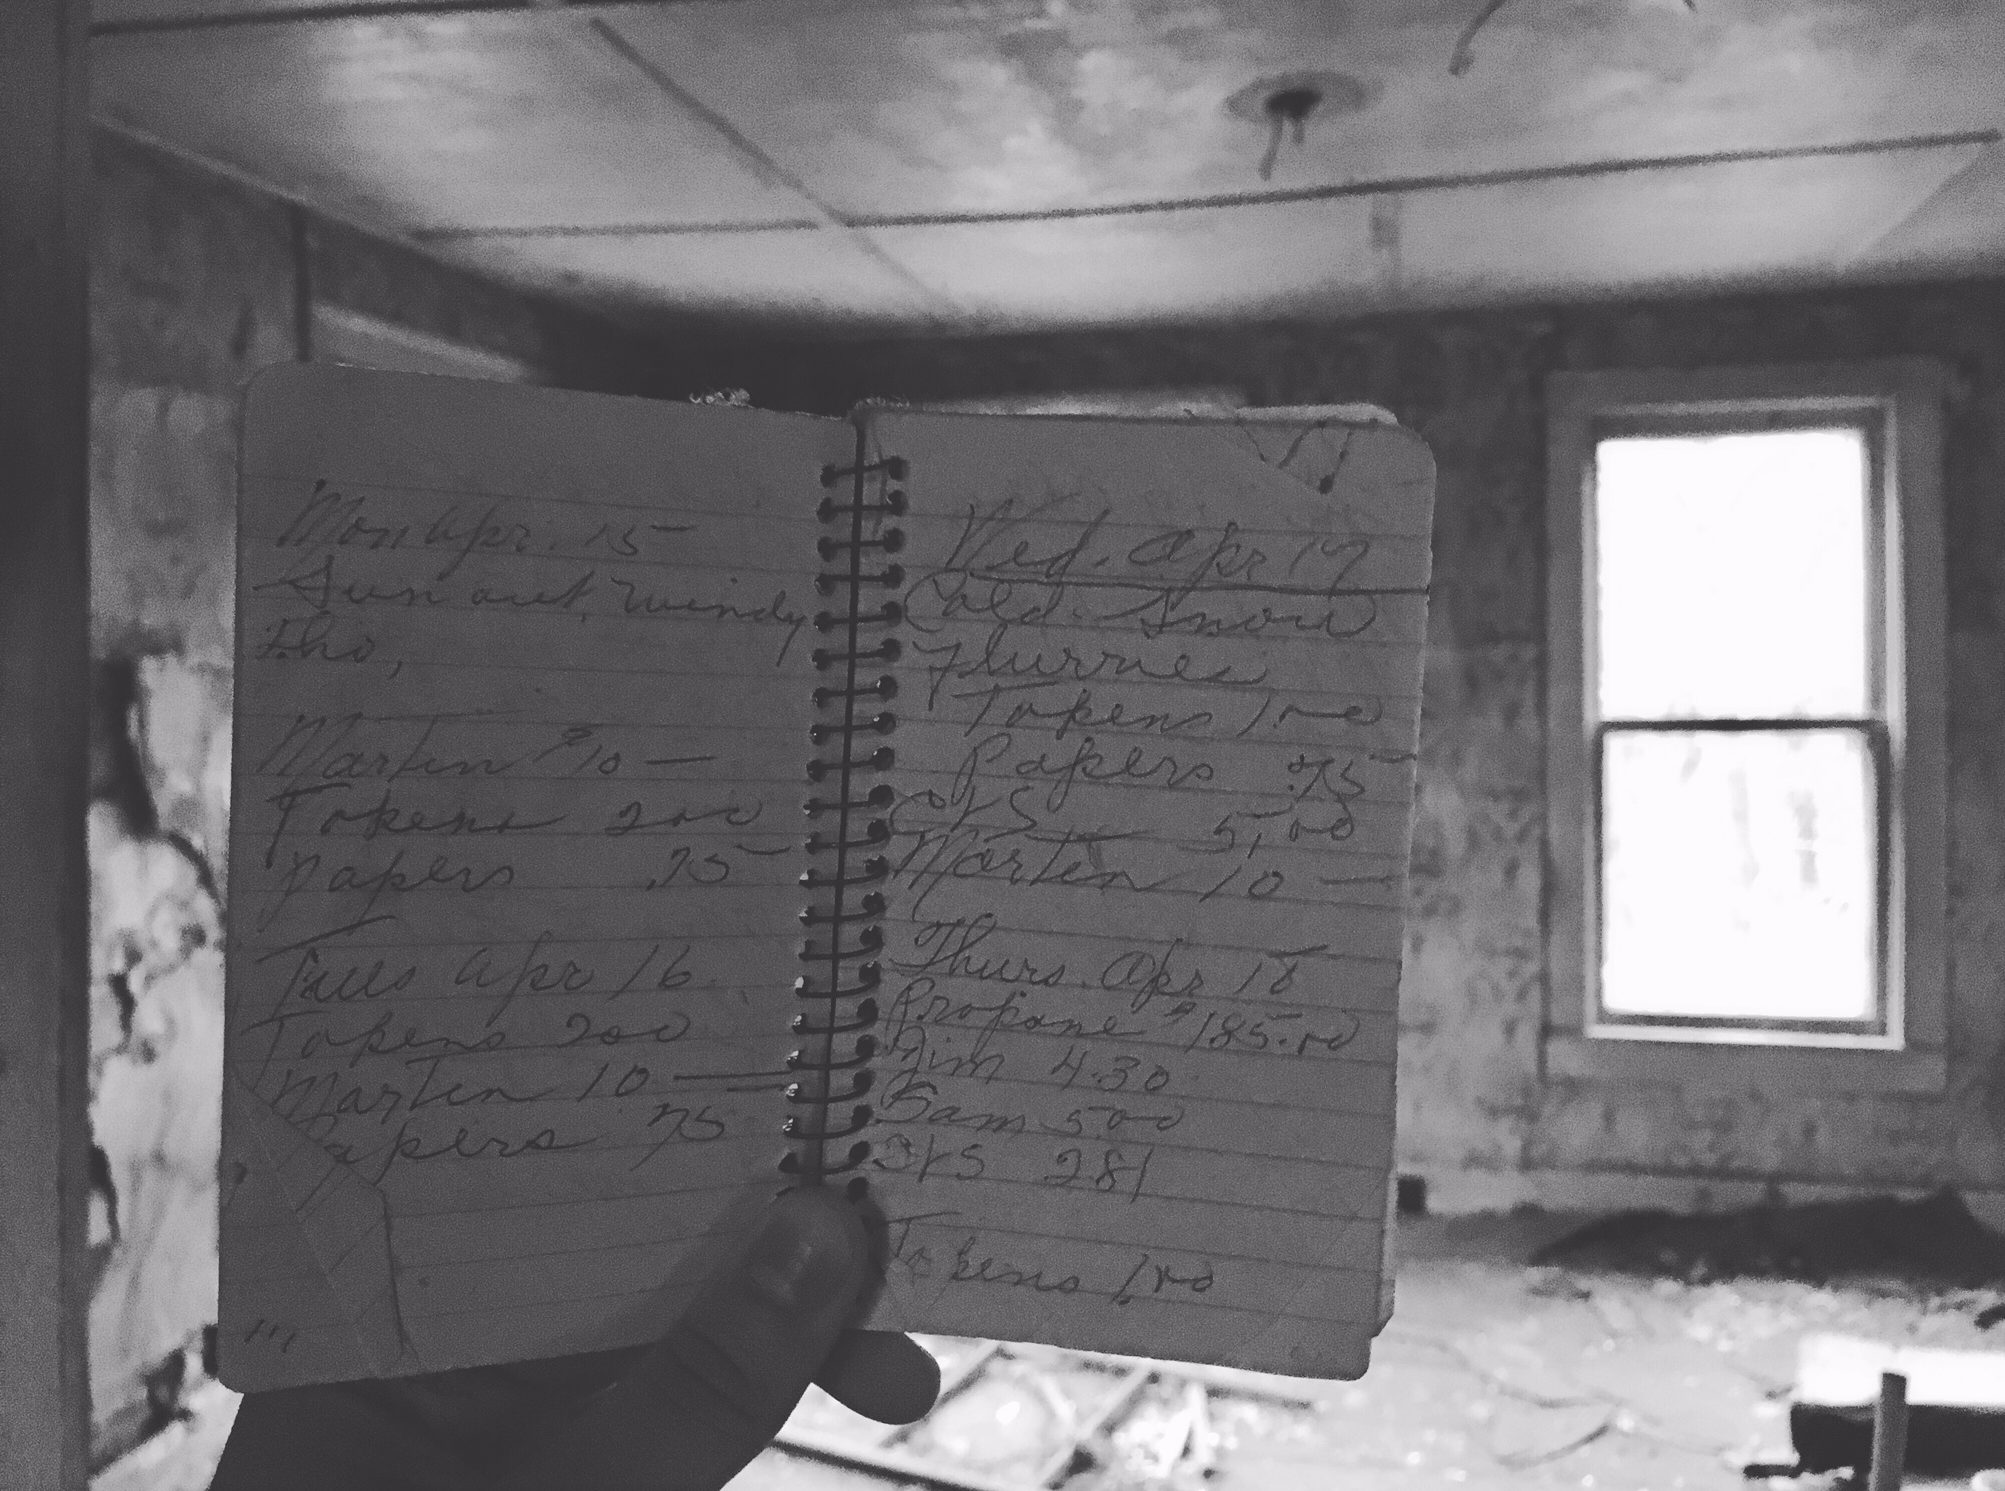 Mon Apr. 15
Sun out, windy
tho,
Martin $10 —
Tokens 200
papers .75
Tues Apr 16
Tokens 200
Martin 10 —
Papers 75
Wed. Apr 17
Cold. Snow
Flurries
Tokens 1.00
Papers .75
CVS 5.00
Martin 10 —
Thurs. Apr 18
Propane $185.00
Jim 4.30
Sam 5.00
281
Tokens 1.00